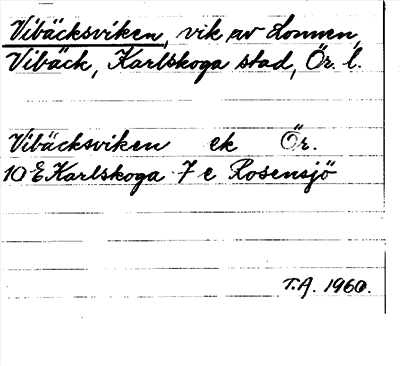 Vibäcksviken, vik av Lonnen,
Vibäck, Karlskoga stad, Ör. l.
Vibäcksviken ek Ör.
10 E Karlskoga 7 e Rosensjö
T.A. 1960.